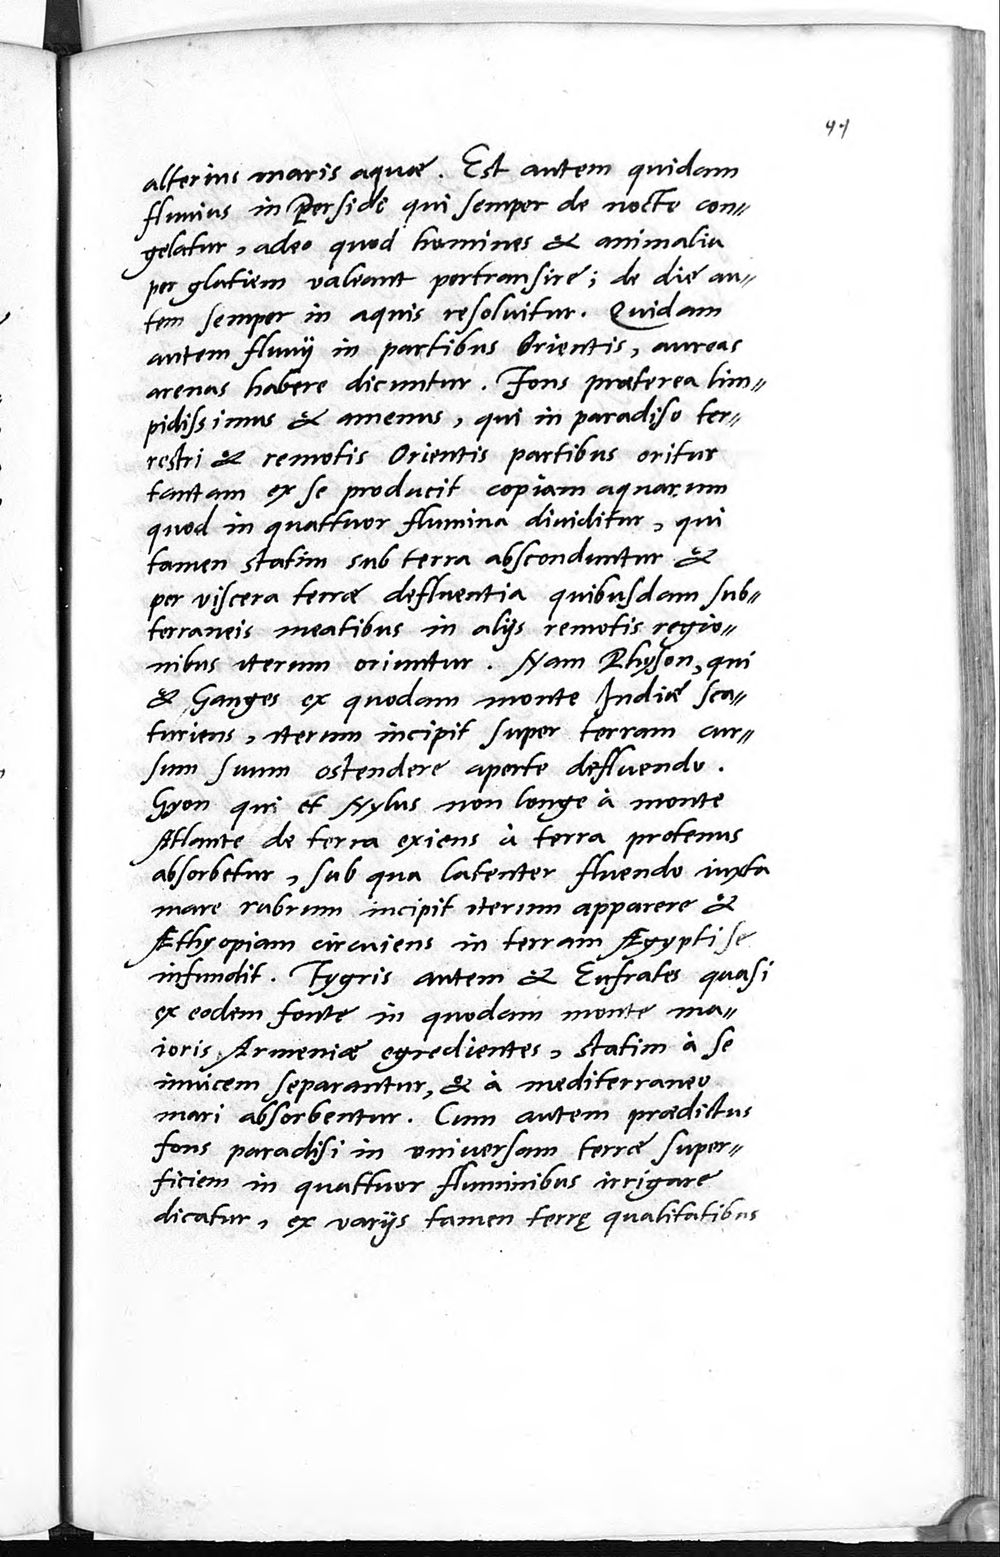 44
alterius maris aquæ. Est autem quidam
fluuius in Perside qui semper de nocte con=
gelatur, adeo quod homines & animalia
per glatiem valeant pertransire; de die au=
tem semper in aquis resoluitur. Quidam
autem fluuij in partibus Orientis, aureas
arenas habere dicuntur. Fons præterea lim=
pidissimus & amenus, qui in paradiso ter=
restri & remotis Orientis partibus oritur
tantam ex se producit copiam aquarum
quod in quattuor flumina diuiditur, qui
tamen statim sub terra absconduntur &
per viscera terræ defluentia quibusdam sub=
terraneis meatibus in alijs remotis regio=
nibus iterum oriuntur. Nam Physon, qui
& Ganges ex quodam monte Indiæ sca=
turiens, iterum incipit super terram cur=
sum suum ostendere aperte defluendo.
Gyon qui et Nylus non longe à monte
Atlante de terra exiens à terra protenus
absorbetur, sub qua latenter fluendo iuxta
mare rubrum incipit iterum apparere &
Æthyopiam circuiens in terram Ægypti se
infundit. Tygris autem & Eufrates quasi
ex eodem fonte in quodam monte ma=
ioris Armeniæ egredientes, statim à se
inuicem separantur, & à mediterraneo
mari absorbentur. Cum autem prædictus
fons paradisi in vniuersam terræ super=
ficiem in quattuor fluminibus irrigare
dicatur, ex varijs tamen terrę qualitatibus